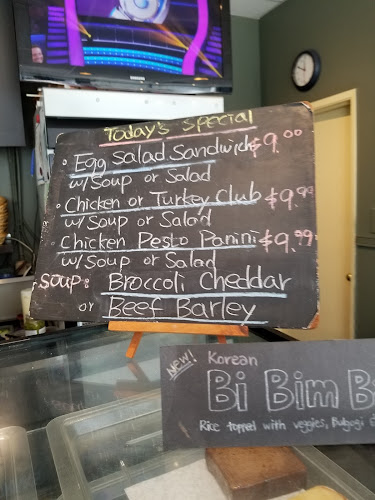 SAMSUNG
Today's Special
• Egg Salad Sandwich $9.00
w/ Soup or Salad
• Chicken or Turkey Club $9.99
w/ Soup or Salad
• Chicken Pesto Panini $9.99
w/ Soup or Salad
Soup: Broccoli Cheddar
or Beef Barley
NEW! Korean
Bi Bim B
Rice topped with veggies, Bulgogi